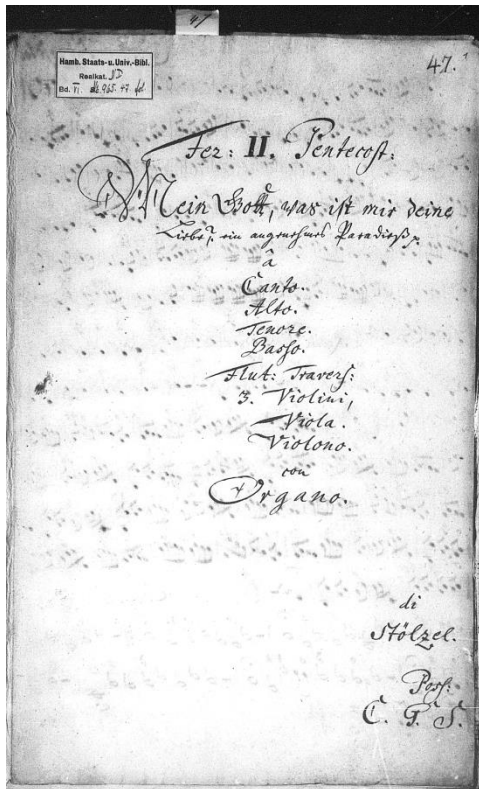 47
47.
Hamb. Staats- u. Univ.-Bibl.
Realkat. ND
Bd. VI. 965. 47 fol.
Fer: II. Pentecost:
Mein Gott, was ist mir deine
Liebe? ein angenehmes Paradieß,
â
Canto.
Alto.
Tenore.
Basso.
Flut: Travers:
3. Violini,
Viola.
Violono.
con
Organo.
di
Stölzel.
Poss:
C. G. S.